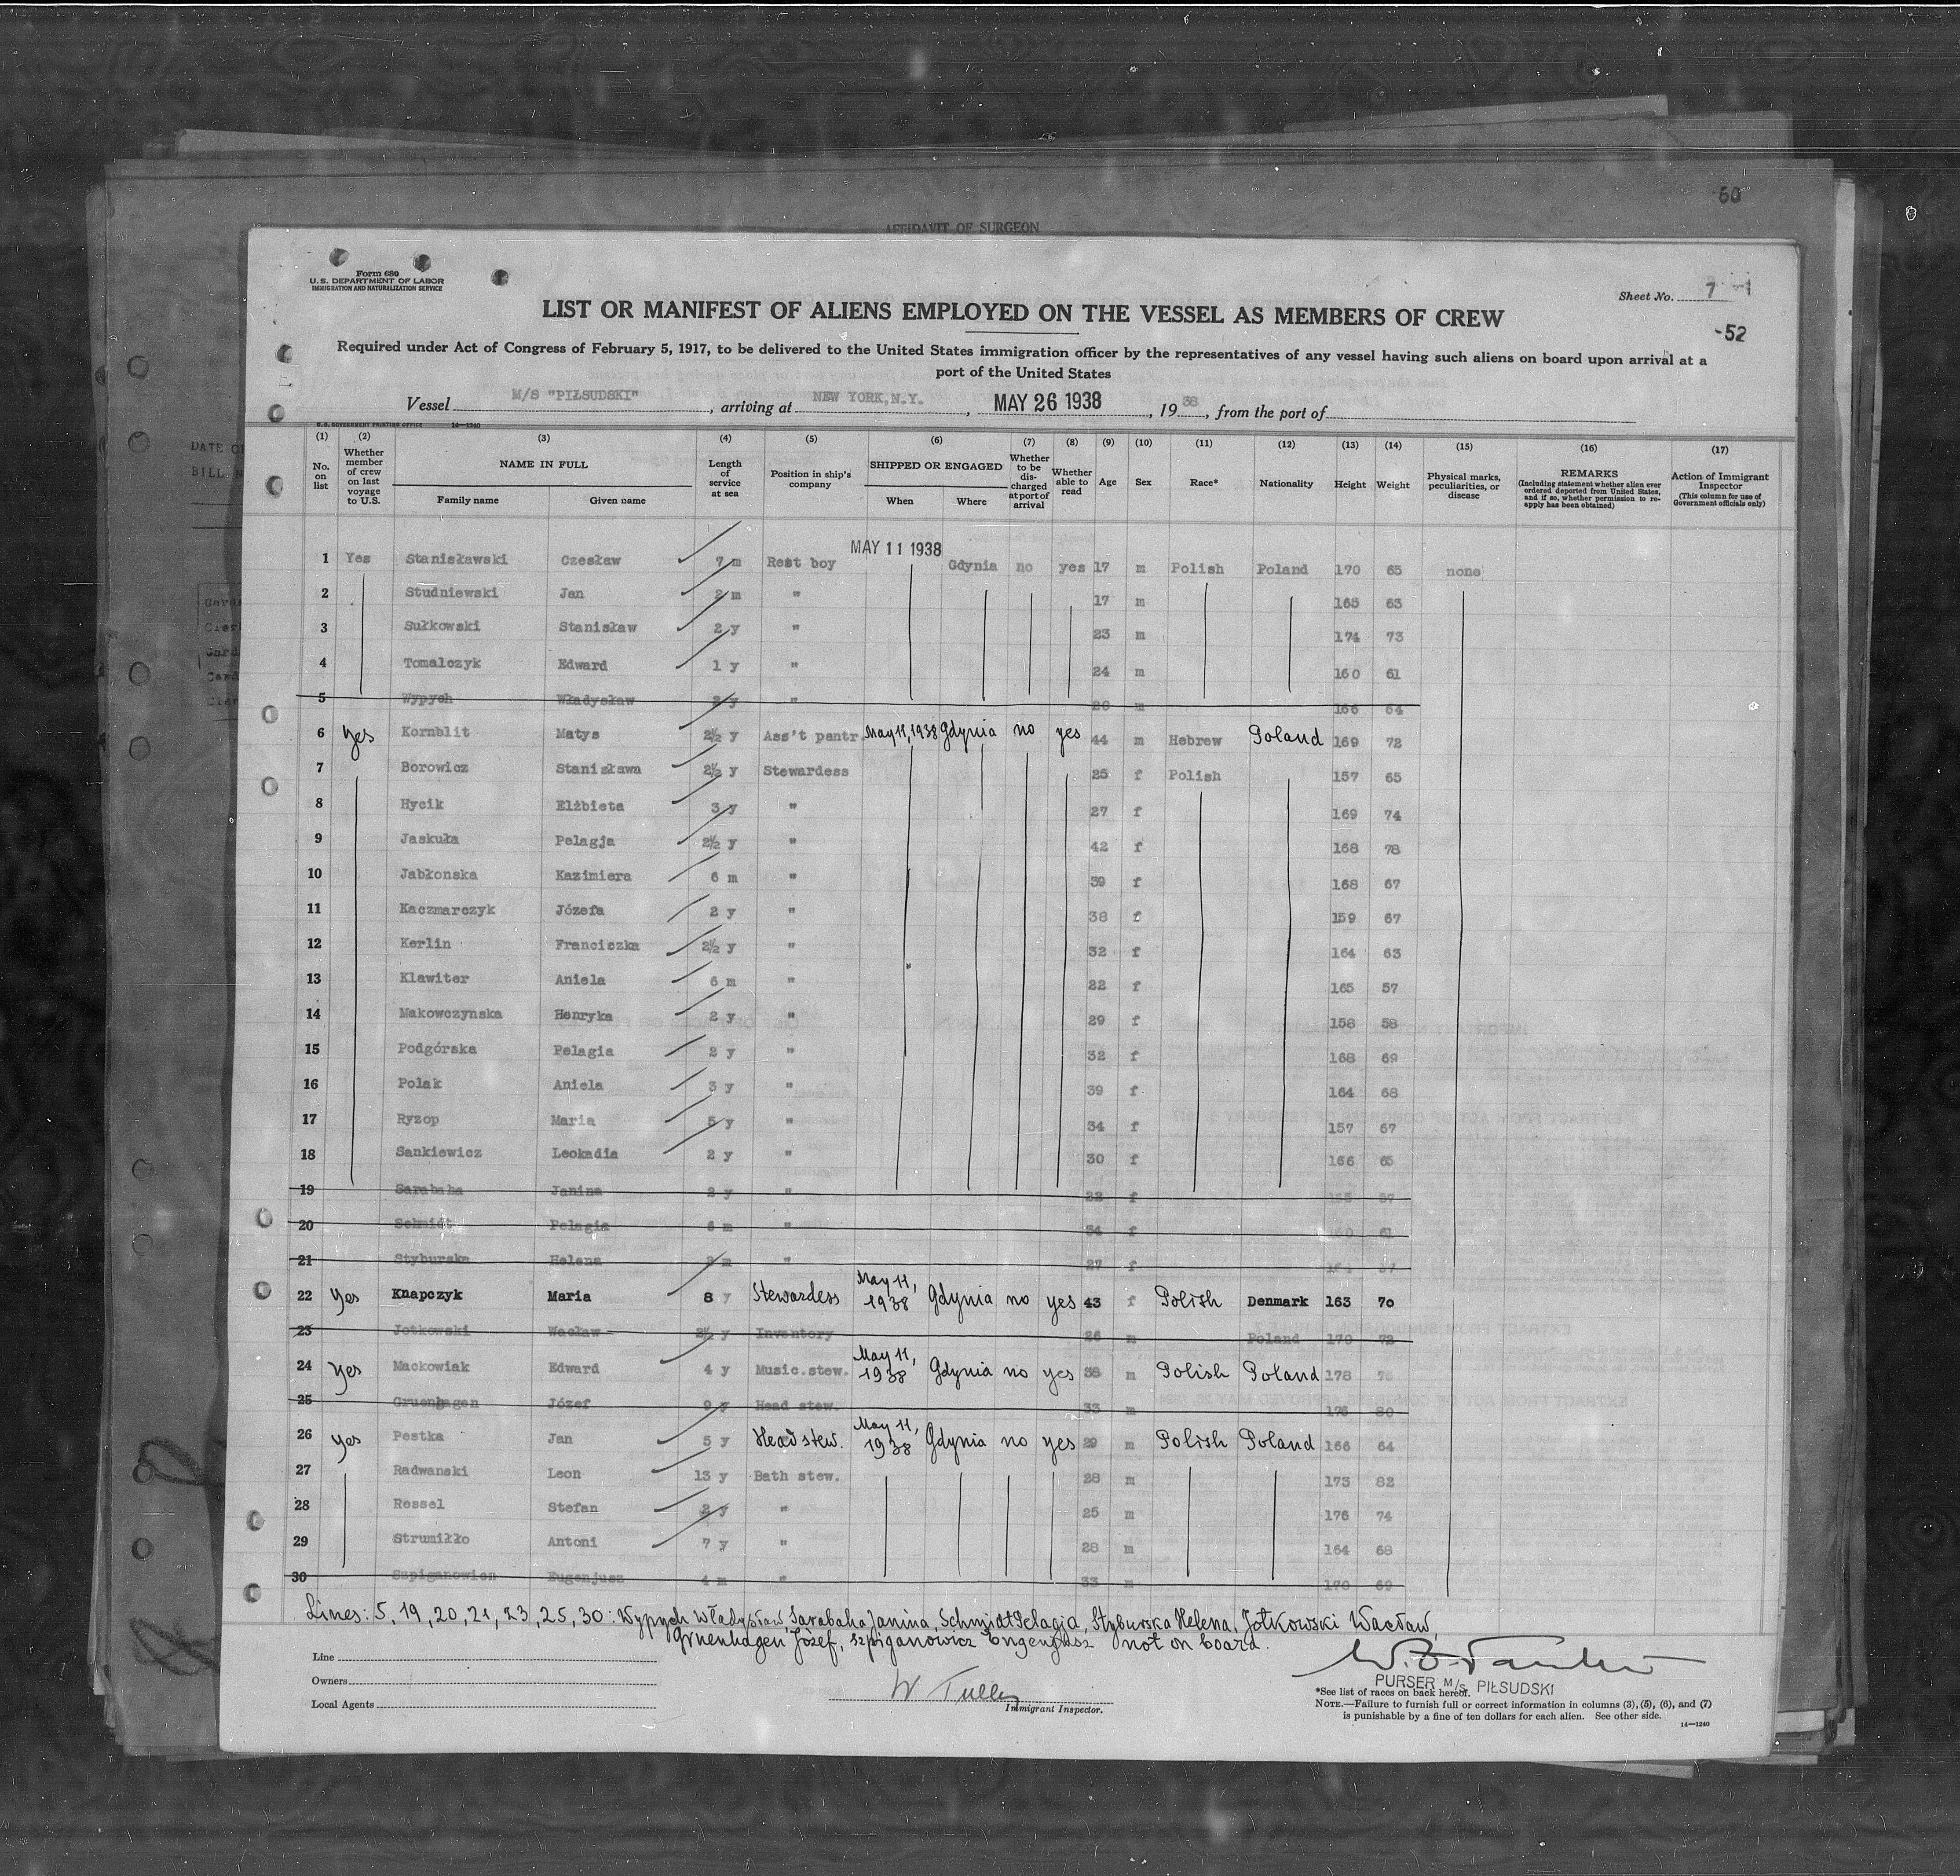 60
AFFIDAVIT OF SURGEON
Form 680
U.S. DEPARTMENT OF LABOR
IMMIGRATION AND NATURALIZATION SERVICE
Sheet No. 7
-52
LIST OR MANIFEST OF ALIENS EMPLOYED ON THE VESSEL AS MEMBERS OF CREW
Required under Act of Congress of February 5, 1917, to be delivered to the United States immigration officer by the representatives of any vessel having such aliens on board upon arrival at a
port of the United States
Vessel M/S "PIŁSUDSKI", arriving at NEW YORK, N.Y., MAY 26 1938, 1938, from the port of
U.S. GOVERNMENT PRINTING OFFICE 14—1240
(1) No. on list (2) Whether member of crew on last voyage to U.S. (3) NAME IN FULL Family name Given name (4) Length of service at sea (5) Position in ship's company (6) SHIPPED OR ENGAGED When Where (7) Whether to be discharged at port of arrival (8) Whether able to read (9) Age (10) Sex (11) Race* (12) Nationality (13) Height (14) Weight (15) Physical marks, peculiarities, or disease (16) REMARKS (Including statement whether alien ever ordered deported from United States, and if so, whether permission to reapply has been obtained) (17) Action of Immigrant Inspector (This column for use of Government officials only)
1 Yes Stanisławski Czesław 7 m Rest boy MAY 11 1938 Gdynia no yes 17 m Polish Poland 170 65 none
2 Studniewski Jan 2 m " 17 m 165 63
3 Sułkowski Stanisław 2 y " 23 m 174 73
4 Tomalczyk Edward 1 y " 24 m 160 61
5 Wypych Władysław 2 y " 26 m 166 64
6 yes Kornblit Matys 2½ y Ass't pantr. May 11, 1938 Gdynia no yes 44 m Hebrew Poland 169 72
7 Borowicz Stanisława 2½ y Stewardess 25 f Polish 157 65
8 Hycik Elżbieta 3 y " 27 f 169 74
9 Jaskuła Pelagja 2½ y " 42 f 168 78
10 Jabłonska Kazimiera 6 m " 39 f 168 67
11 Kaczmarczyk Józefa 2 y " 38 f 159 67
12 Kerlin Franciszka 2½ y " 32 f 164 63
13 Klawiter Aniela 6 m " 22 f 165 57
14 Makowczynska Henryka 2 y " 29 f 158 58
15 Podgórska Pelagia 2 y " 32 f 168 69
16 Polak Aniela 3 y " 39 f 164 68
17 Ryzop Maria 5 y " 34 f 157 67
18 Sankiewicz Leokadia 2 y " 30 f 166 65
19 Sarabaha Janina 2 y " 22 f 57
20 Schmidt Pelagia 6 m " 34 f 61
21 Styburska Helena 2 m " 27 f
22 yes Knapczyk Maria 8 y Stewardess May 11, 1938 Gdynia no yes 43 f Polish Denmark 163 70
23 Jotkowski Wacław 2½ y Inventory 26 m Poland 170 72
24 yes Mackowiak Edward 4 y Music.stew. May 11, 1938 Gdynia no yes 38 m Polish Poland 178
25 Gruenhagen Józef 9 y Head stew. 33 m 176 80
26 yes Pestka Jan 5 y Head stew. May 11, 1938 Gdynia no yes 29 m Polish Poland 166 64
27 Radwanski Leon 13 y Bath stew. 28 m 173 82
28 Ressel Stefan 2 y " 25 m 176 74
29 Strumiłło Antoni 7 y " 28 m 164 68
30 Szpiganowicz Eugenjusz 4 m " 33 m 170 69
Lines: 5, 19, 20, 21, 23, 25, 30: Wypych Władysław, Sarabaha Janina, Schmidt Pelagja, Styburska Helena, Jotkowski Wacław,
Gruenhagen Józef, Szpiganowicz Eugenjusz not on board.
Line
Owners
Local Agents
W Tully
Immigrant Inspector.
PURSER M/S PIŁSUDSKI
*See list of races on back hereof.
NOTE.—Failure to furnish full or correct information in columns (3), (5), (6), and (7)
is punishable by a fine of ten dollars for each alien. See other side.
14—1240